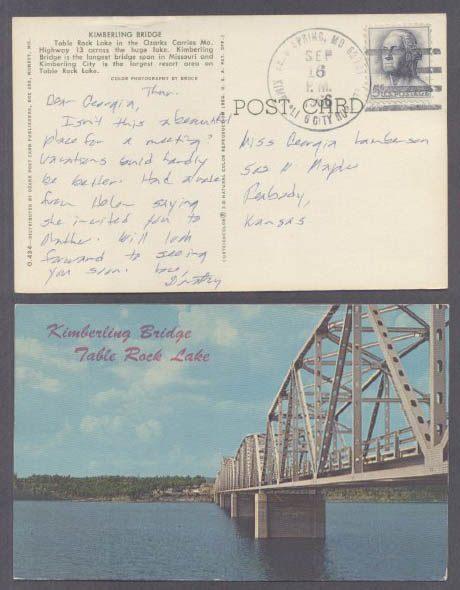 KIMBERLING BRIDGE
Table Rock Lake in the Ozarks Carries Mo.
Highway 13 across the huge lake. Kimberling
Bridge is the largest bridge span in Missouri and
Kimberling City is the largest resort area on
Table Rock Lake.
COLOR PHOTOGRAPHY BY BRUCE
Thur.
Dear Georgia,
Isn't this a beautiful
place for a meeting?
Vacations could hardly
be better. Had a
from Helen saying
she invited you to
Mother. Will look
forward to seeing
you soon.
O.424—DISTRIBUTED BY OZARK POST CARD PUBLISHERS, BOX 285, MONETT, MO.
POST CARD
SPRING, MO
SEP
16
P.M.
CITY
Miss Georgia Lamberson
N Maple
Peabody,
Kansas
Kimberling Bridge
Table Rock Lake